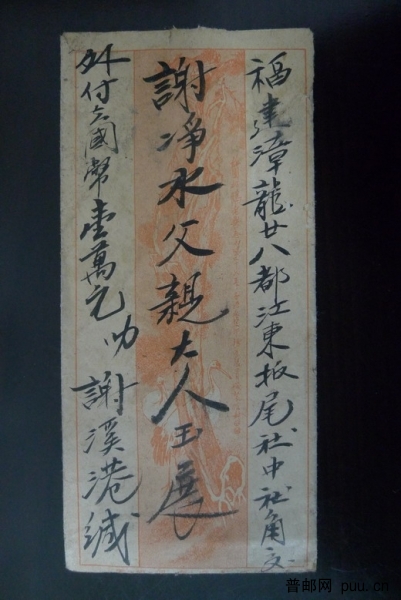 福建漳龍廿八都江東坂尾社中社角交
謝净水父親大人玉展
外付去國幣壹萬元
叻 謝溪港緘
普邮网 puu.cn